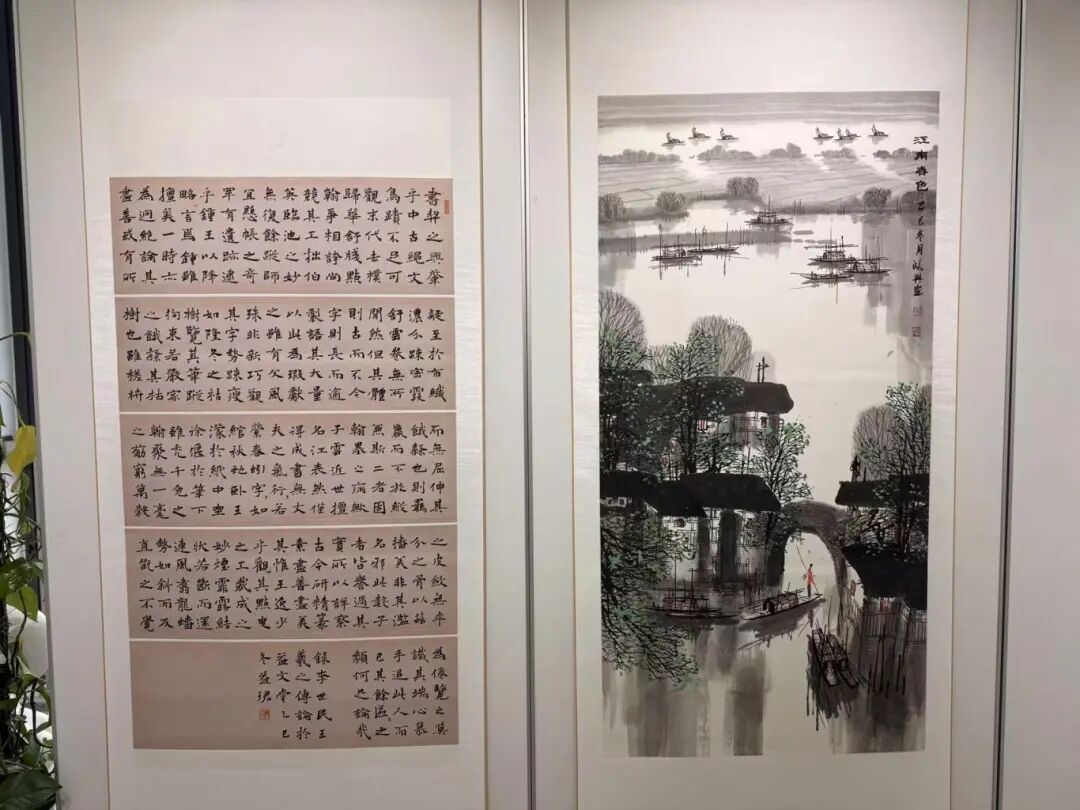 書契之興肇
乎中古繩文
鳥蹟不足可
觀末代去樸
歸華舒牋點
翰爭相誇尚
競其工拙伯
英臨池之妙
無復餘蹤師
宜懸帳之奇
罕有遺跡逮
乎鍾王以降
略言焉鍾雖
擅美一時亦
為迥絕論其
盡善或有所
疑至於布纖
濃分疎密霞
舒雲卷無所
間然但其體
則古而不今
字則長而逾
製語其大量
以此為瑕獻
之雖有父風
殊非新巧觀
其字勢疎瘦
如隆冬之枯
樹覽其筆蹤
拘束若嚴家
之餓隸其枯
樹也雖槎枿
而無屈伸其
餓隸也則羈
羸而不放縱
兼斯二者固
翰墨之病歟
子雲近世擅
名江表然僅
得成書無丈
夫之氣行々若
縈春蚓字々如
綰秋蛇臥王
濛於紙中坐
徐偃於筆下
雖禿千兔之
翰聚無一毫
之筋窮萬穀
之皮斂無半
分之骨以茲
播美非其濫
名邪此數子
者皆譽過其
實所以詳察
古今研精篆
素盡善盡美
其惟王逸少
乎觀其點曳
之工裁成之
妙煙霏露結
狀若斷而還
連鳳翥龍蟠
勢如斜而反
直翫之不覺
為倦覽之莫
識其端心慕
手追此人而
已其餘區々之
類何足論哉
錄李世民王
羲之傳論於
益文堂乙巳
冬益珺
江南春色 乙巳冬月